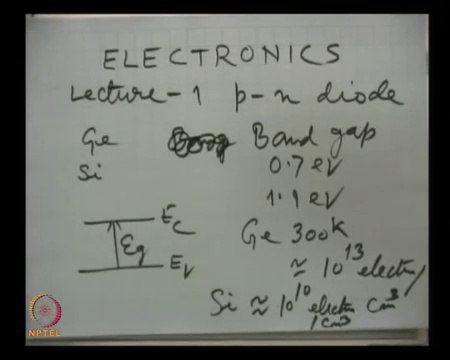 ELECTRONICS
Lecture - 1 p-n diode
Ge Band gap
Si 0.7 eV
1.1 eV
Ec
Eg
Ev
Ge 300K
≈ 10^13 electrn/
cm^3
Si ≈ 10^10 electrn
/cm^3
NPTEL